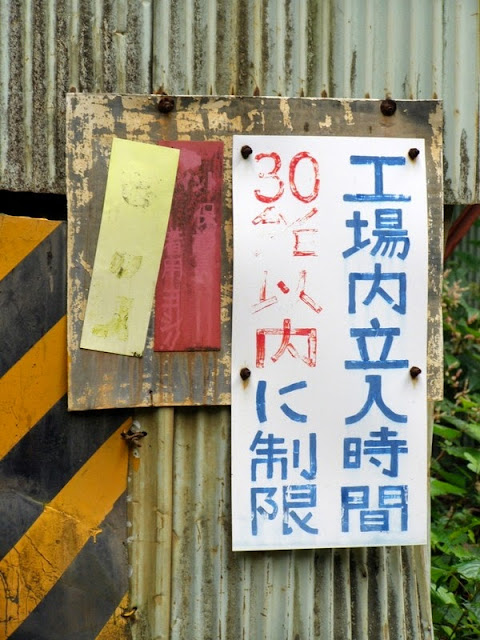 工場内立入時間
30分以内に制限